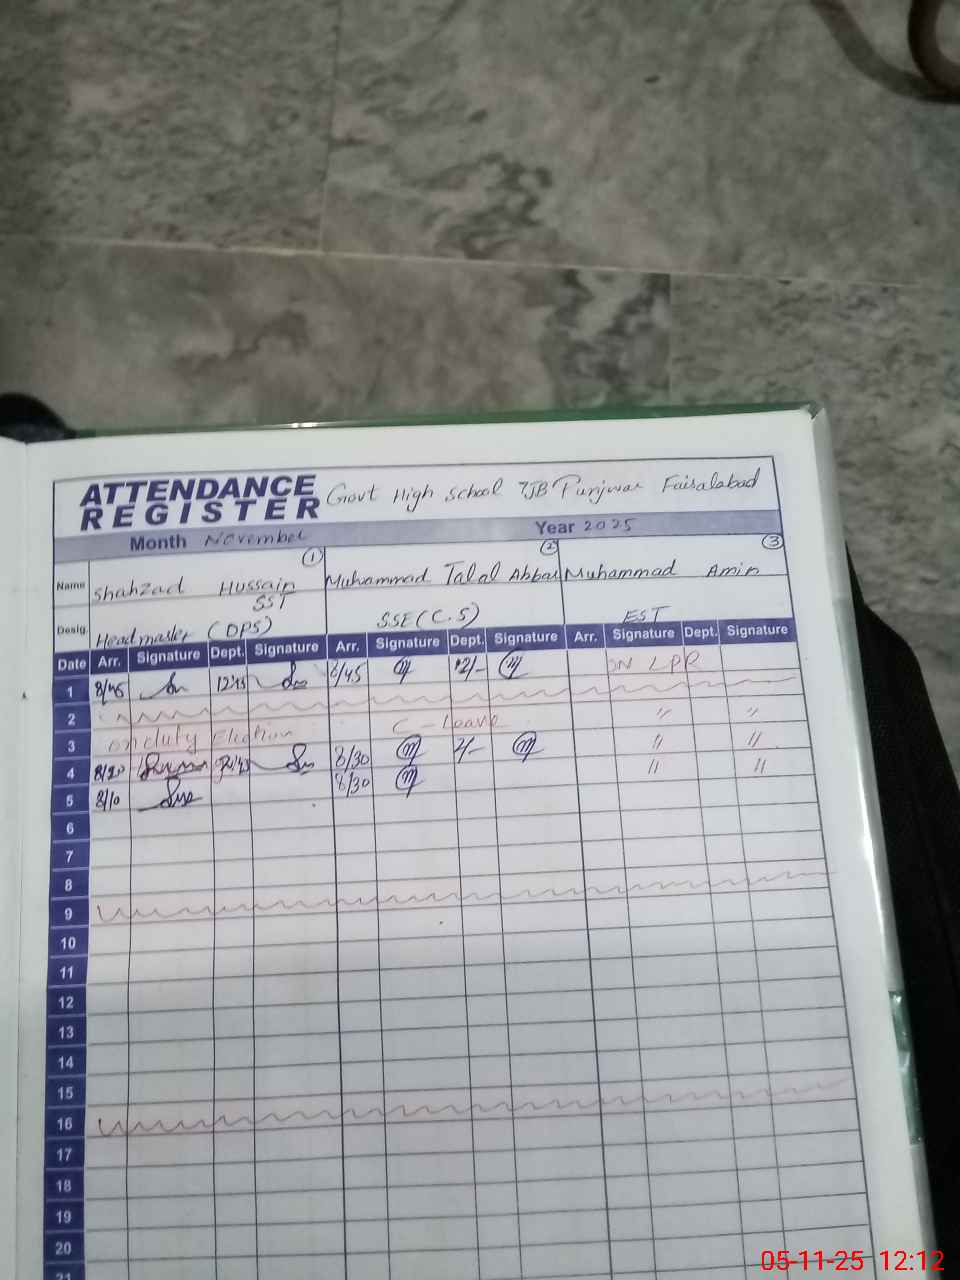 ATTENDANCE REGISTER Govt High School 7JB Punjwar Faisalabad
Month November Year 2025
1 2 3
Name Shahzad Hussain Muhammad Talal Abbas Muhammad Amin
Desig. Headmaster SST (OPS) SSE (C.S) EST
Date Arr. Signature Dept. Signature Arr. Signature Dept. Signature Arr. Signature Dept. Signature
1 8/45 12:45 8/45 12/- ON LPR
2
3 on duty Election C-Leave " "
4 8/20 8/30 2/- " "
5 8/10 8/30 " "
6
7
8
9
10
11
12
13
14
15
16
17
18
19
20
21
05-11-25 12:12